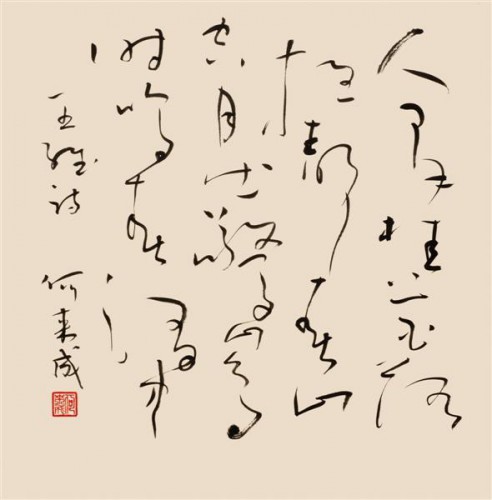 人闲桂花落
夜静春山
空月出惊山鸟
时鸣春涧中
王维诗 何来成